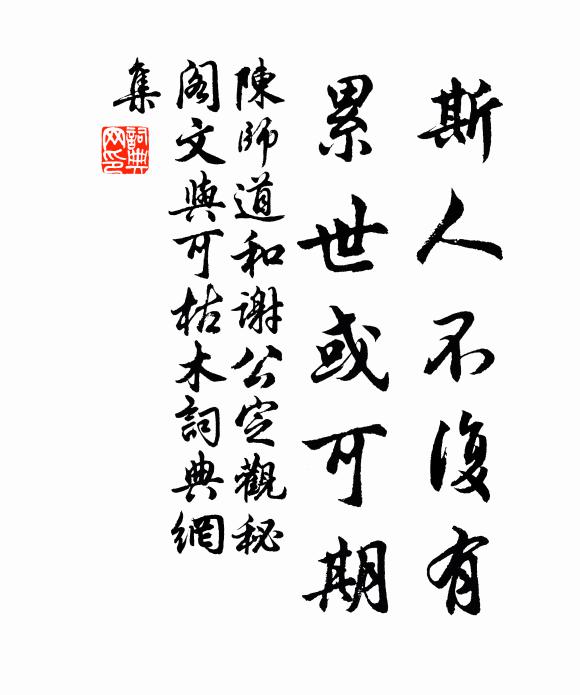 斯人不復有
累世或可期
陳師道和謝公定觀秘
阁文與可枯木詞典網
集
詞典
网印